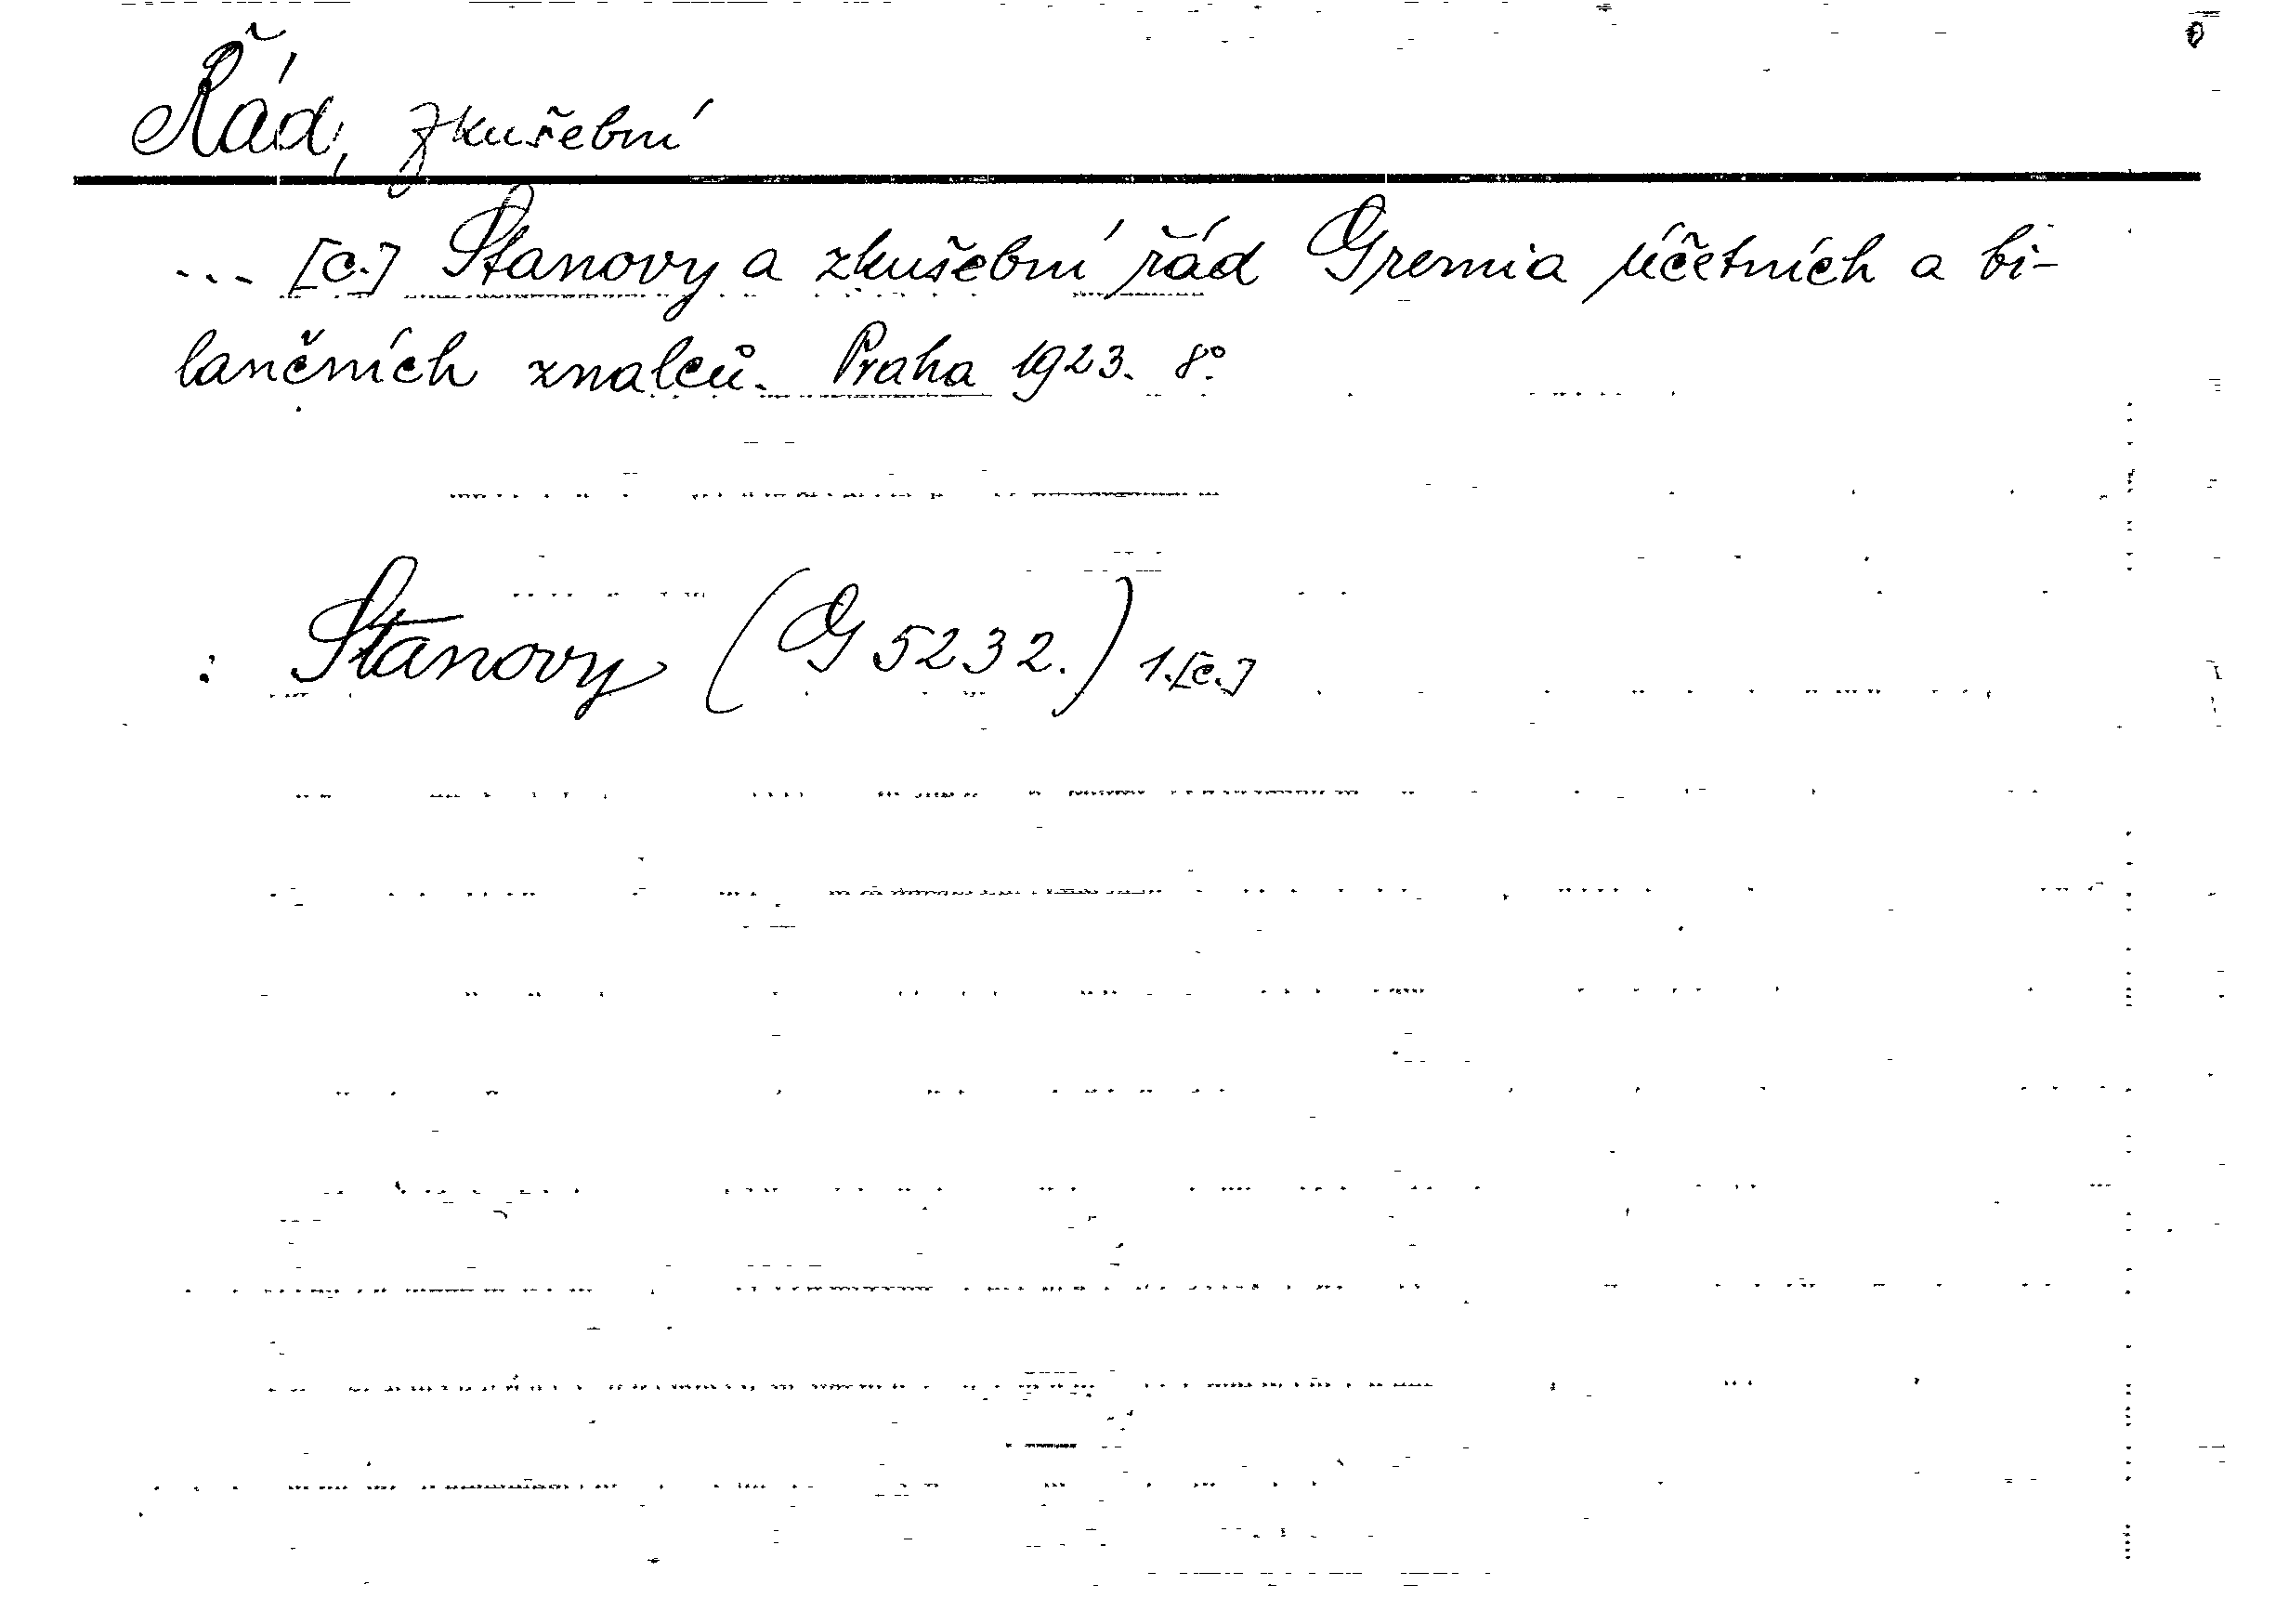 Řád, zkušební
... [c.] Stanovy a zkušební řád Gremia účetních a bi-
lančních znalců. Praha 1923. 8°.
: Stanovy (G 5232.) 1.[c.]